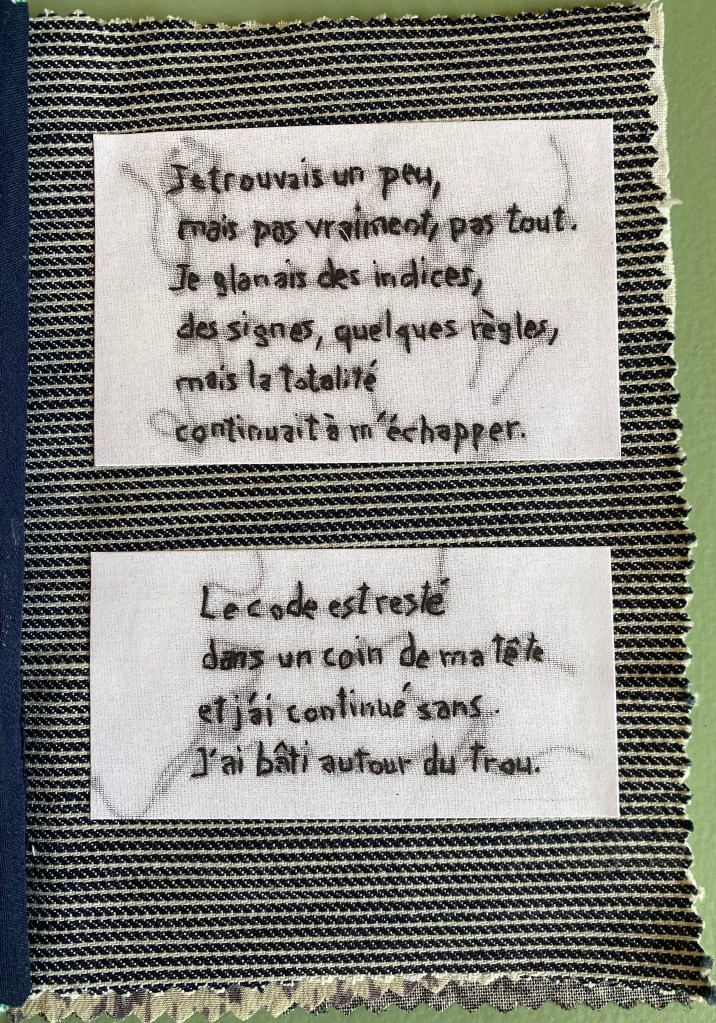 Je trouvais un peu,
mais pas vraiment, pas tout.
Je glanais des indices,
des signes, quelques règles,
mais la totalité
continuait à m'échapper.
Le code est resté
dans un coin de ma tête
et j'ai continué sans.
J'ai bâti autour du trou.